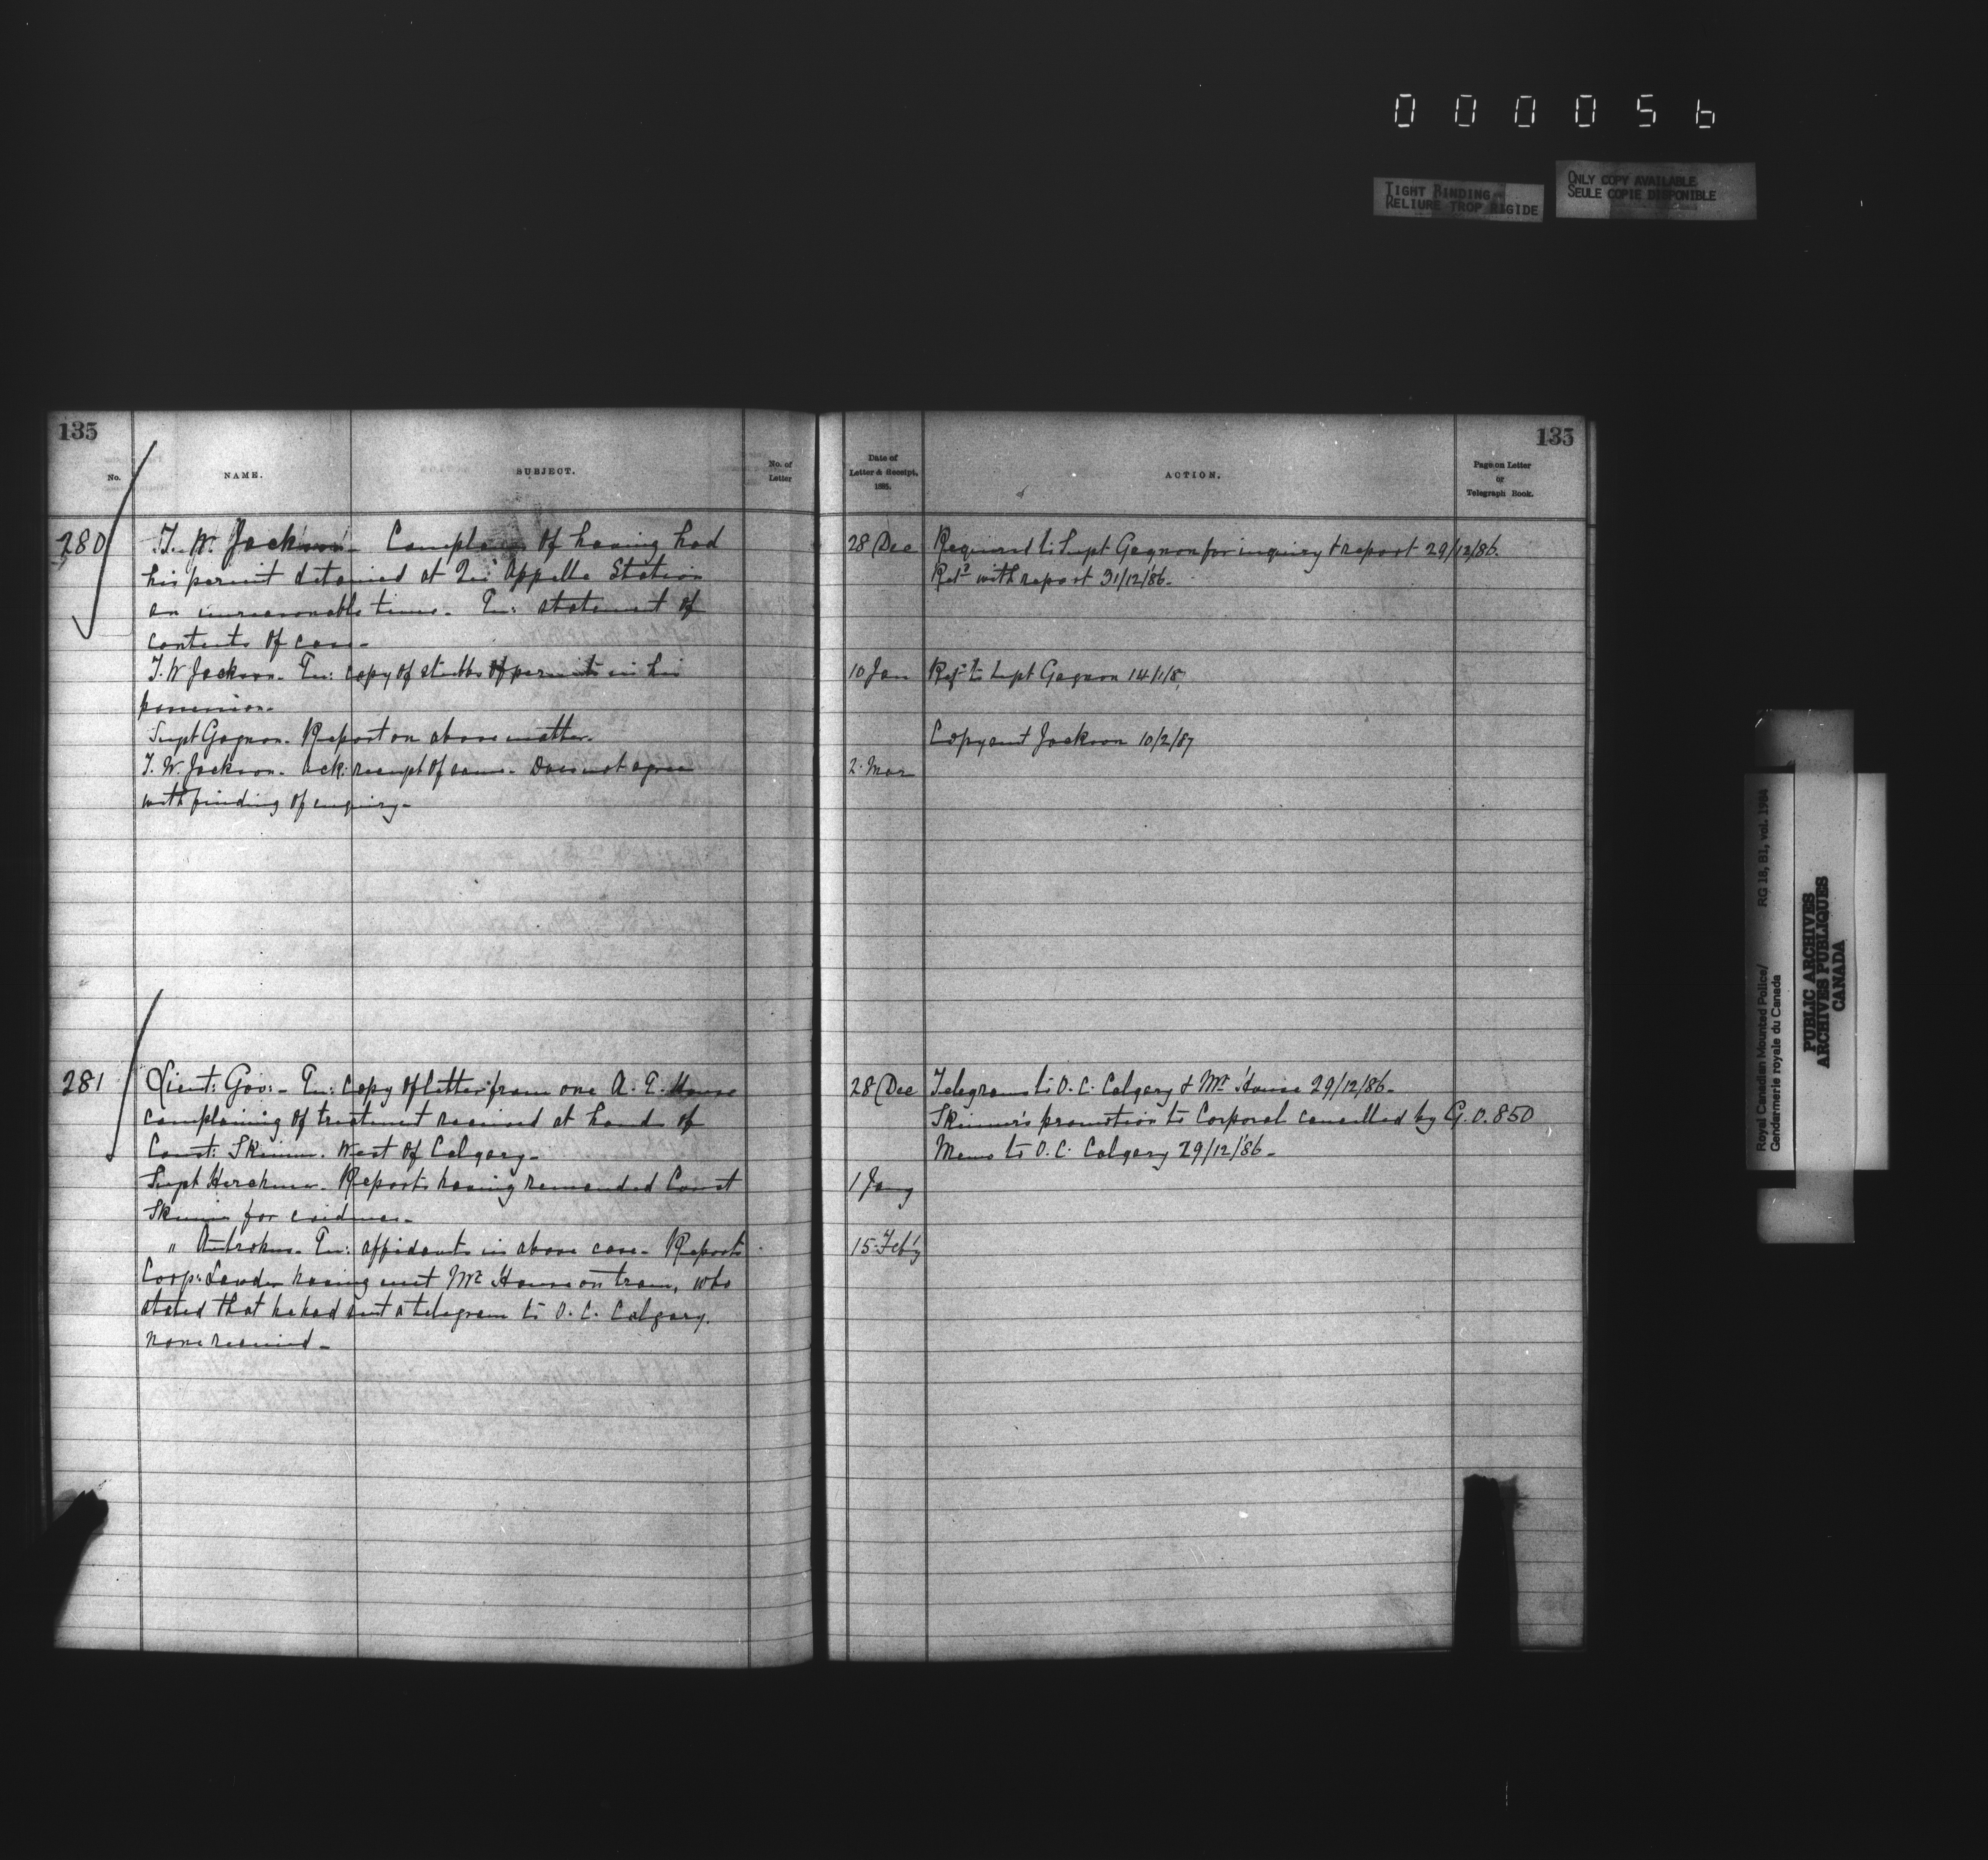 000056
TIGHT BINDING
RELIURE TROP RIGIDE
ONLY COPY AVAILABLE
SEULE COPIE DISPONIBLE
135
No.
NAME.
SUBJECT.
No. of
Letter
280
T. W. Jackson - Complains of having had
his permit detained at Qu'Appelle Station
an unreasonable time - En: statement of
contents of case -
T. W Jackson - En: copy of stubbs of permits in his
possession -
Supt Gagnon - Report on above matter.
T. W. Jackson - ack: receipt of same - Does not agree
with finding of enquiry -
281
Lieut: Gov: - En: copy of letter from one A. E. House
complaining of treatment received at hands of
Const: Skinner. West of Calgary -
Supt Herchmer. Reports having remanded Const
Skinner for evidence -
" Antrobus - En: affidavits in above case - Reports
Corp: Lauder having met Mr House on train, who
stated that he had sent a telegram to O. C. Calgary.
none received -
135
Date of
Letter & Receipt.
188 .
ACTION.
Page on Letter
or
Telegraph Book.
28 Dec Required to Supt Gagnon for inquiry & report 29/12/86.
Ret'd with report 31/12/86 -
10 Jan Ref'd to Supt Gagnon 14/1/87
Copy sent Jackson 10/2/87
2. Mar
28 Dec Telegrams to O. C. Calgary & Mr House 29/12/86 -
Skinner's promotion to Corporal cancelled by G. O. 850
Memo to O. C. Calgary 29/12/86 -
1 Jany
15. Feb'y
Royal Canadian Mounted Police/ RG 18, B1, vol. 1984
Gendarmerie royale du Canada
PUBLIC ARCHIVES
ARCHIVES PUBLIQUES
CANADA